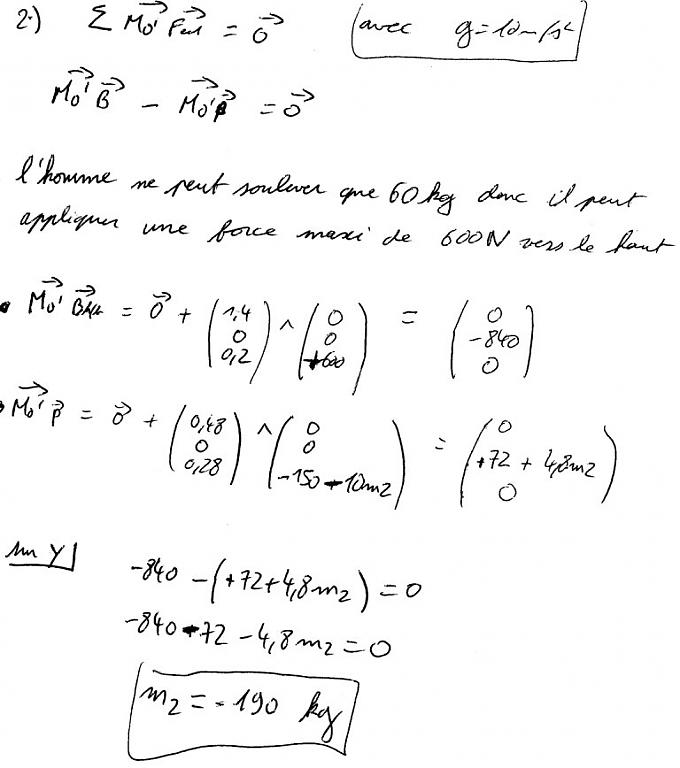 2.) Σ M⃗o' F⃗ext = 0⃗ (avec g=10 m/s²
M⃗o' B⃗ - M⃗o' P⃗ = 0⃗
l'homme ne peut soulever que 60 kg donc il peut
appliquer une force maxi de 600N vers le haut
• M⃗o' B⃗ = 0⃗ + (1,4 0 0,2) ∧ (0 0 +600) = (0 -840 0)
• M⃗o' P⃗ = 0⃗ + (0,48 0 0,28) ∧ (0 0 -150-10m2) = (0 +72 + 4,8m2 0)
sur Y
-840 - (+72+4,8m2) = 0
-840 - 72 - 4,8m2 = 0
m2 = -190 kg